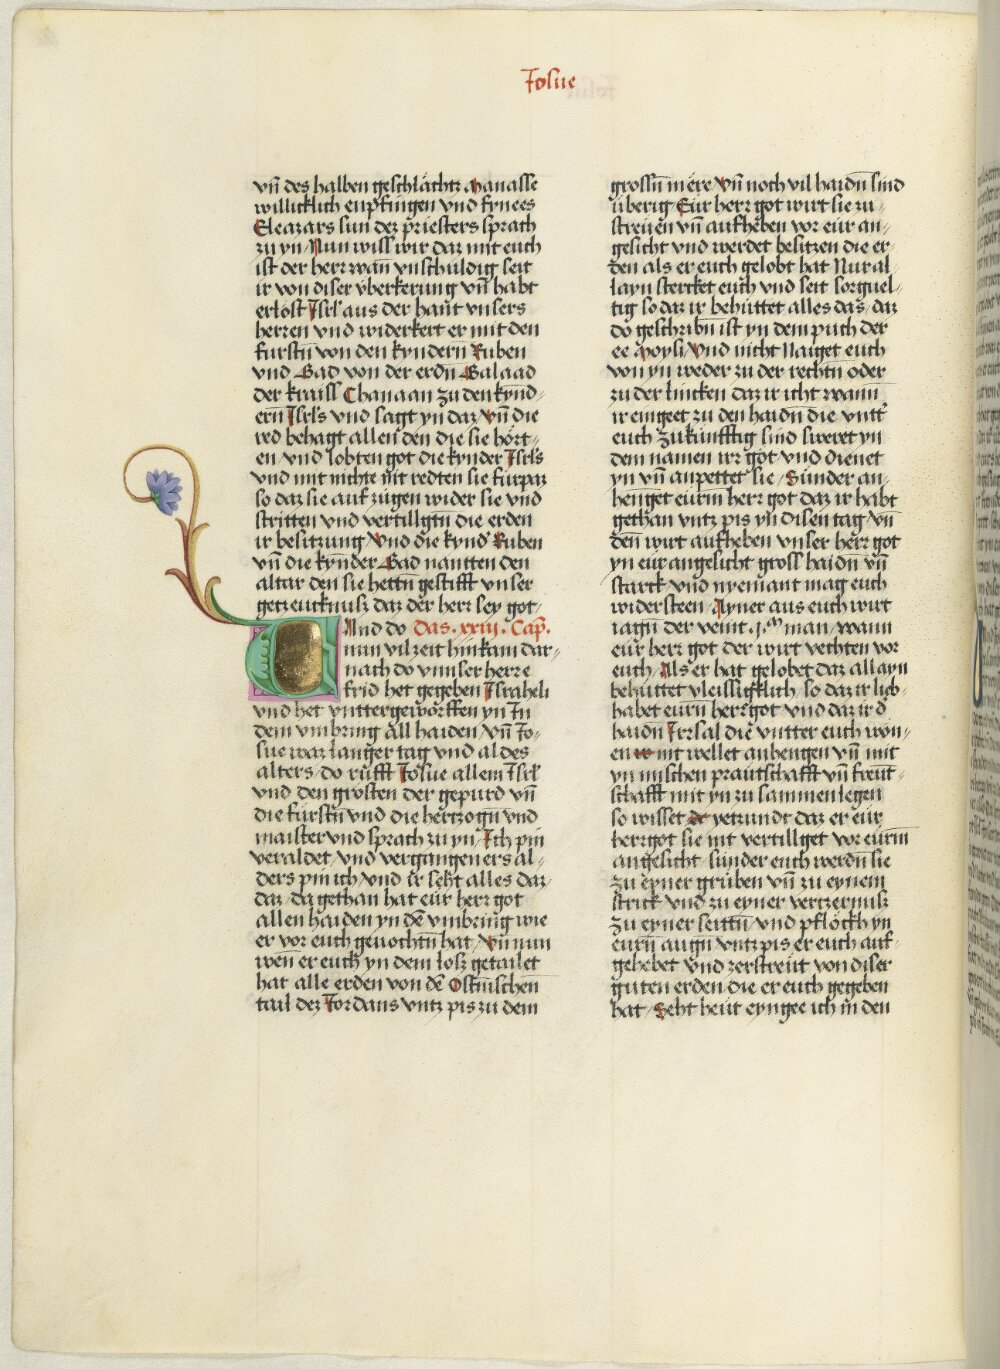 Josue
vn̄ des halben geschlächtz Manasse
willicklich enpfingen vnd fynees
Eleazars sun dez priesters sprach
zu yn Nun wiss wir daz mit euch
ist der herr wan̄ vnschuldig seit
ir von diser vberkerung vn̄ habt
erlöst Jsrl aus der hant vnsers
herren vnd widerkert er mit den
furstn̄ von den kyndern̄ Ruben
vnd Gad von der erdn̄ Galaad
der kraiss Chanaan zu den kynd⸗
ern Jsrls vnd sagt yn daz Vn̄ die
red behagt allen den die sie hört⸗
en vnd lobten got die kynder Jsrls
vnd mit nichte mit redten sie fürpaz
so daz sie auf zugen wider sie vnd
stritten vnd vertillgtn̄ die erden
ir besitzung Vnd die kynd Ruben
vn̄ die kynder Gad nantten den
altar den sie hettn̄ gestifft vnser
getzeucknusz daz der herr sey got
Vnd do Das .xxiij. Cap̄.
nun vil zeit hinkam dar⸗
nach do vnnser herre
frid het gegeben Jsraheli
vnd het vnttergeworffen yn Jn
dem vmbring all haiden vn̄ Jo⸗
sue waz langer tag vnd al des
alters do rüfft Josue allem Jsrl
vnd den grosten der gepurd vn̄
die fürstn̄ vnd die hertzogn̄ vnd
maister vnd sprach zu yn Jch pin
veraldet vnd vergangen ers al⸗
ders pin ich vnd ir seht alles daz
daz da gethan hat eür herr got
allen haiden yn dē vmbring wie
er vor euch geuochtn̄ hat Vn̄ nun
wen er euch yn dem losz getailet
hat alle erden von dē Ostn̄ischen
tail dez Jordans vntz pis zu dem
grossn̄ mëre Vn̄ noch vil haidn̄ sind
überig Eür herr got wirt sie zu⸗
streüen vn̄ aufheben vor eür an⸗
gesicht vnd werdet besitzen die er⸗
den als er euch gelobt hat Nur al⸗
layn stercket euch vnd seit sorguel⸗
tig so daz ir behüttet alles das daz
do geschribn̄ ist yn dem puch der
ee Moysi Vnd nicht Naiget euch
von yn weder zu der rechtn̄ oder
zu der lincken daz ir icht wann
ir eingeet zu den haidn̄ die vntt̄
euch zukünfftig sind sweret yn
dem namen irr göt vnd dienet
yn vn̄ anpettet sie Sünder an⸗
henget eürm herr got daz ir habt
gethan vntz pis yn disen tag vn̄
den̄ wirt aufheben vnser herr got
yn eür angesicht gross haidn̄ vn̄
starck vnd nyemant mag euch
widersteen Ayner aus euch wirt
iagn̄ der veint .j.m man wann
eür herr got der wirt vechten vor
euch Als er hat gelobet daz allayn
behüttet vleissigklich so daz ir lieb⸗
habet eürn̄ herr got vnd daz ir d̄
haidn̄ Jrrsal die vntter euch won⸗
en ir nit wellet anhengen vn̄ mit
yn mischen prautschafft vn̄ freut⸗
schafft mit yn zu sammen legen
so wisset de yetzundt daz er eür
herr got sie nit vertillget vor eürm
angesicht sünder euch werdn̄ sie
zu eyner grüben vn̄ zu eynem
strick vnd zu eyner vertzernusz
zu eyner seittn̄ vnd pflöckh yn
eurn̄ augn̄ vntz pis er euch auf⸗
gehebet vnd zerstreut von diser
guten erden die er euch gegeben
hat Seht heüt eyngee ich in den